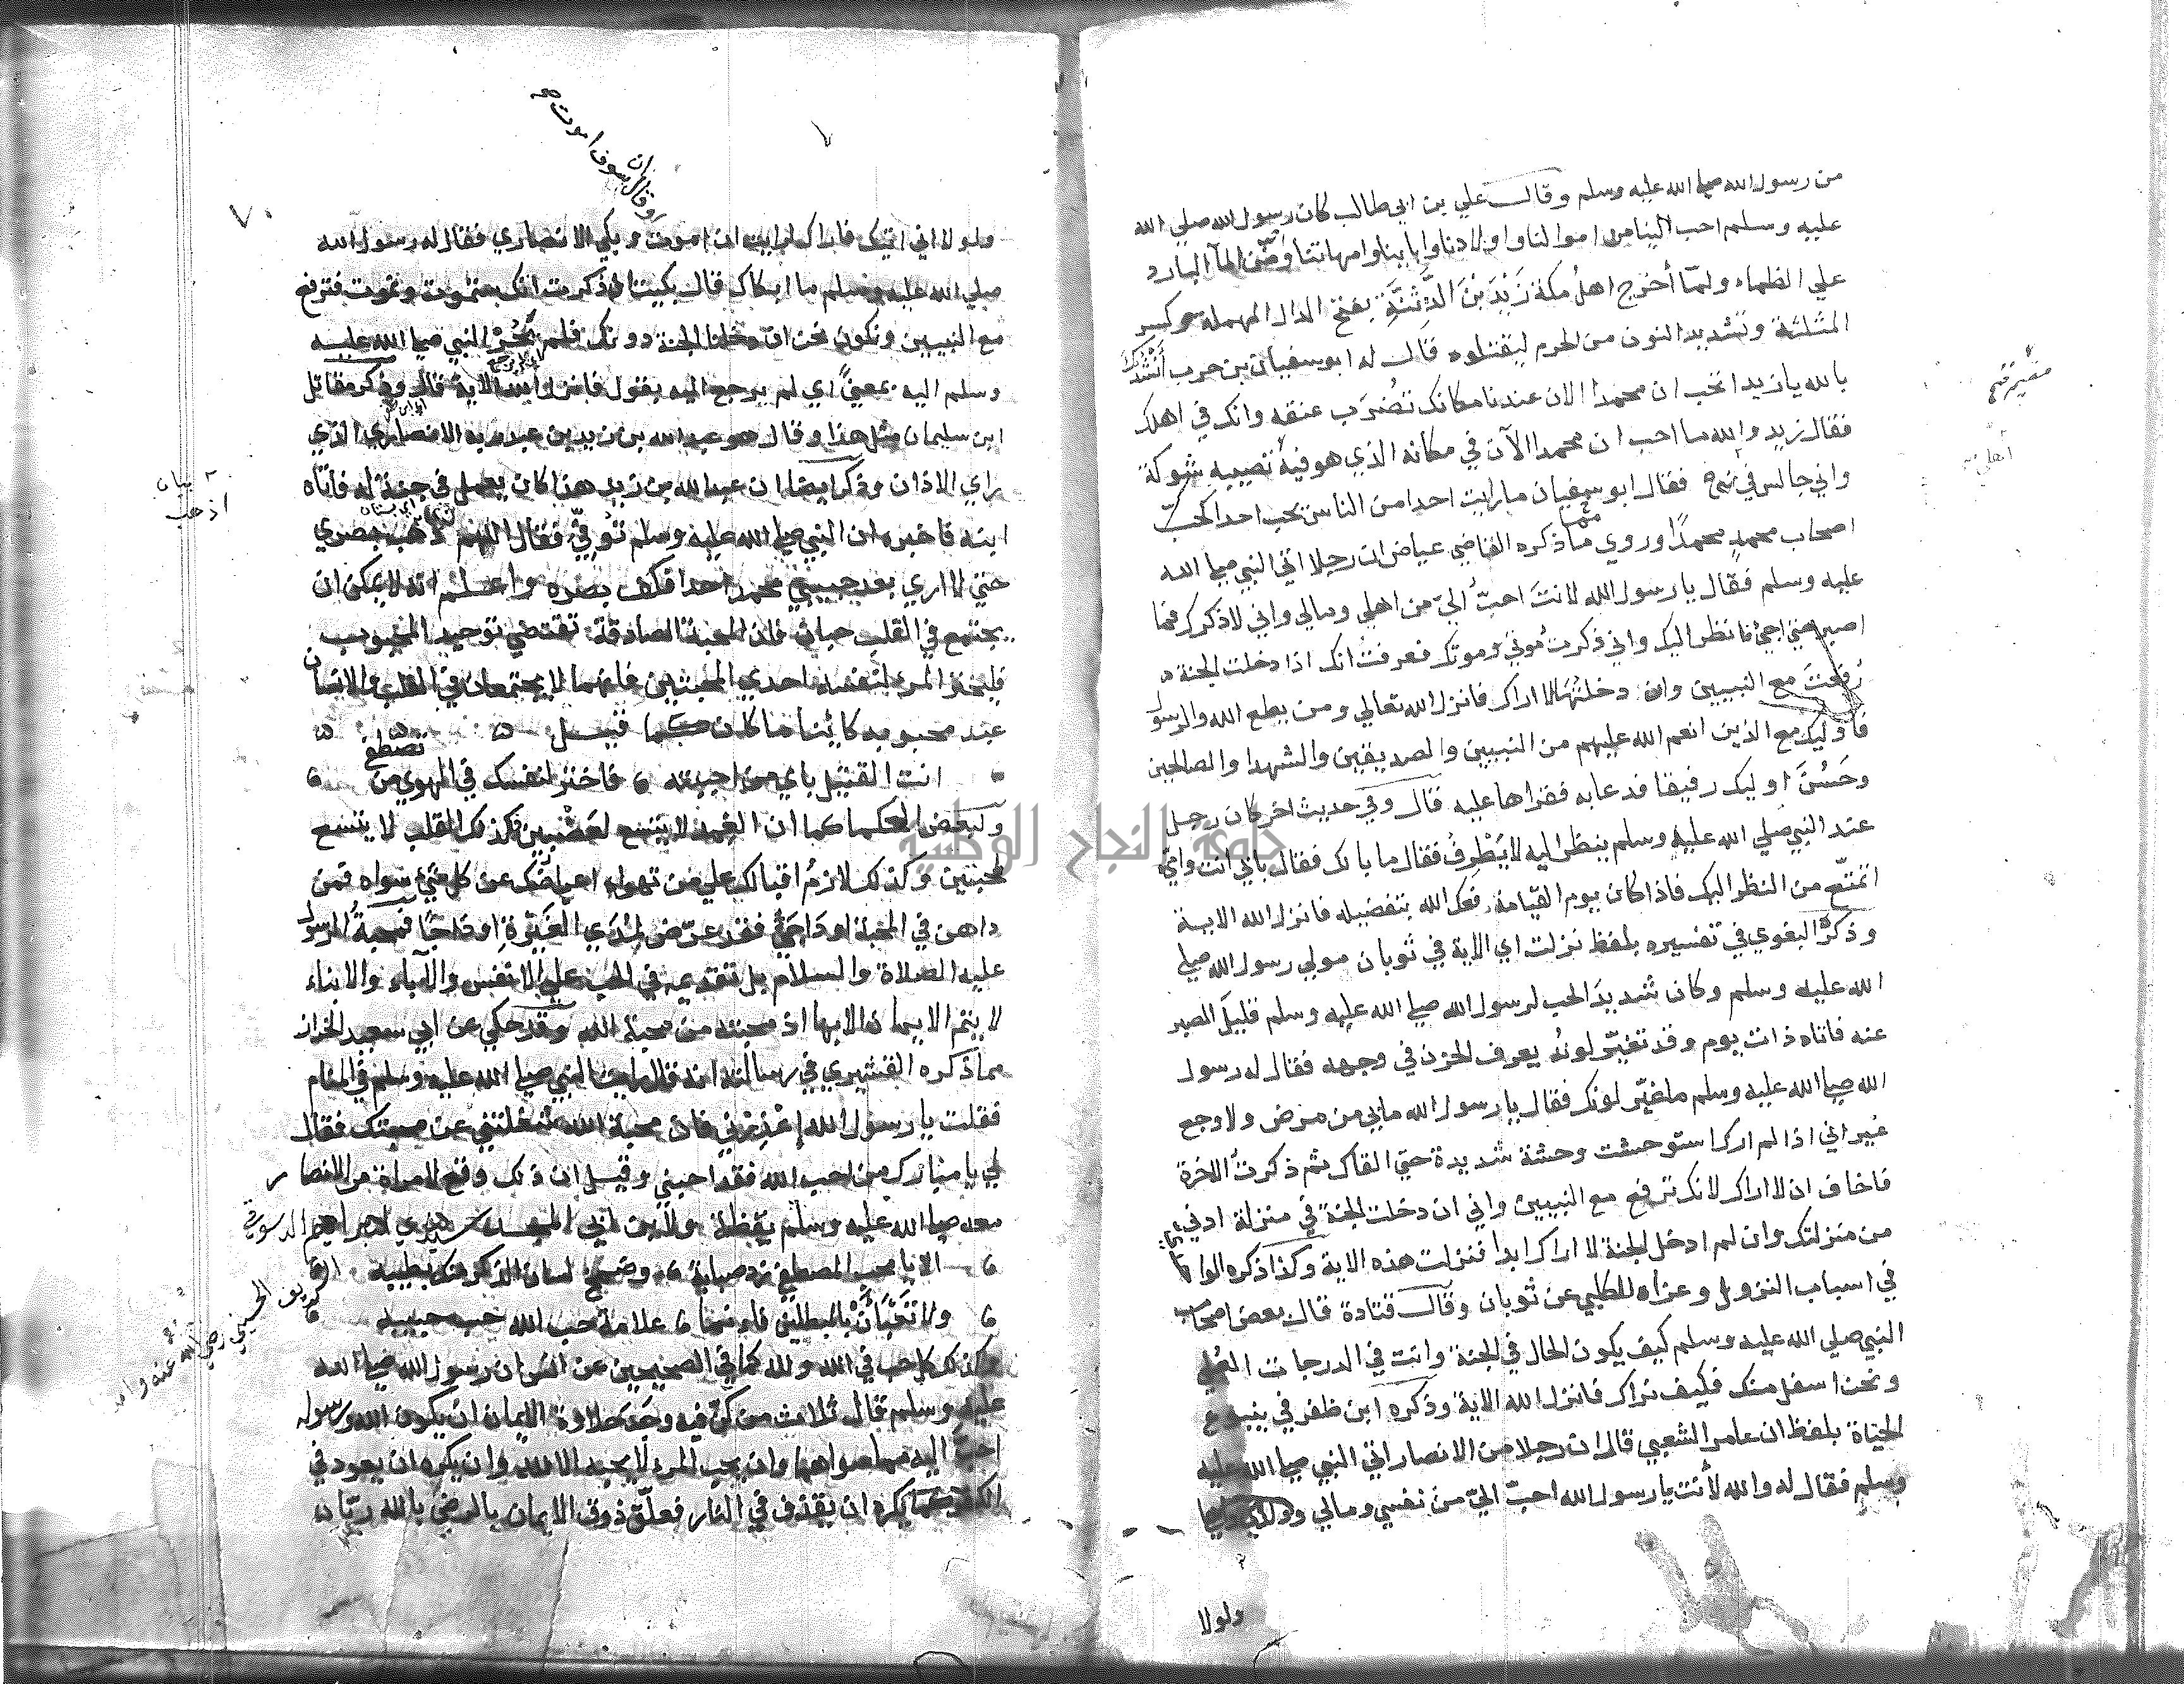 من رسول الله صلي الله عليه وسلم وقال علي بن ابي طالب كان رسول الله صلي الله
عليه وسلم احب الينا من اموالنا واولادنا وابائنا وامهاتنا ومن المآ البارد
علي الظماء ولما أخرج اهل مكة زَيْدَ بْنَ الدَّثِنَّةِ بفتح الدال المهمله وكسر
المثلثة وتشديد النون من الحرم ليقتلوه قال له ابو سفيان بن حرب أَنْشُدُكَ
بالله يا زيد اتحب ان محمدا الان عندنا مكانك تُضْرَب عنقه وانك في اهلك
فقال زيد والله ما احب ان محمدا الآن في مكانه الذي هو فيه تصيبه شوكة
واني جالس في فقال ابو سفيان ما رايت احدا من الناس يحب احدا كحبّ
اصحاب محمدٍ محمدًا وروي مما ذكره القاضي عياض ان رجلا اتي النبي صلي الله
عليه وسلم فقال يا رسول الله لانتَ احبُّ اليّ من اهلي ومالي واني لاذكرك فما
اصبر حتي اجيء فانظر اليك واني ذكرت موتي وموتك فعرفت انك اذا دخلت الجنة
رُفِعْتَ مع النبيين وان دخلتُهَا لا اراك فانزل الله تعالي ومن يطع الله والرسول
فاوليك مع الذين انعم الله عليهم من النبيين والصديقين والشهدا والصالحين
وحَسُنَ اوليك رفيقا فدعا به فقراها عليه قال وفي حديث اخر كان رجل
عند النبي صلي الله عليه وسلم ينظر اليه لا يَطْرِفُ فقال ما بالك فقال بابي انت وامّي
اتمتّع من النظر اليك فاذا كان يوم القيامة رفعك الله بتفضيله فانزل الله الاية
وذكره البغوي في تفسيره بلفظ نزلت اي الاية في ثوبان مولي رسول الله صلي
الله عليه وسلم وكان شديدَ الحب لرسول الله صلي الله عليه وسلم قليلَ الصبر
عنه فاتاه ذات يوم وقد تغيّر لونُه يعرف الحزن في وجهه فقال له رسول
الله صلي الله عليه وسلم ما غيّر لونك فقال يا رسول الله ما بي من مرض ولا وجع
غير اني اذا لم ارك استوحشت وحشة شديدة حتي القاك ثم ذكرتُ الاخرة
فاخاف ان لا اراك لانك ترفع مع النبيين واني ان دخلت الجنة في منزلة ادني
من منزلتك وان لم ادخل الجنة لا اراك ابدا فنزلت هذه الاية وكذا ذكره الوا
في اسباب النزول وعزاه للكلبي عن ثوبان وقال قتادة قال بعض اصحاب
النبي صلي الله عليه وسلم كيف يكون الحال في الجنة وانت في الدرجات العُلي
ونحن اسفل منك فكيف نراك فانزل الله الاية وذكره ابن ظفر في ينبوع
الحياة بلفظ ان عامر الشعبي قال ان رجلا من الانصار اتي النبي صلي الله عليه
وسلم فقال له والله لأنت يا رسول الله احبّ اليّ من نفسي ومالي وولدي
ولولا
ولولا اني اتيتك فاراك لرايت ان اموت وبكي الانصاري فقال له رسول الله
صلي الله عليه وسلم ما ابكاك قال بكيت ان ذكرت انك ستموت ونموت فترفع
مع النبيين ونكون نحن ان دخلنا الجنة دونك فلم يَحُرْ النبي صلي الله عليه
وسلم اليه بمعنيً اي لم يرجع اليه بقول فانزل الله الاية قال وذكر مقاتل
ابن سليمان مثل هذا وقال هو عبد الله بن زيد بن عبد ربه الانصاري الذي
راي الاذان وذكر ايضا ان عبد الله بن زيد هذا كان يعمل في جنة له فاتاه
ابنه فاخبره ان النبي صلي الله عليه وسلم توفيّ فقال اللهم اذهب بصري
اي بستان
بيان
اذهب
حتي لا اري بعد حبيبي محمد احدا فكف بصره واعلم انه لا يمكن ان
يجتمع في القلب حبان فان المحبة الصادقة تقتضي توحيد المحبوب
فليختر المرء لنفسه احدي المحبتين فانهما لا يجتمعان في القلب والانسان
عند محبوبه كائنا ما كان كما قيل
انت القتيل باي من احببته فاختر لنفسك في الهوي من تصطفي
ولبعض الحكما كما ان الغمد لا يتسع لعَضْبين فكذلك القلب لا يتسع
لمحبتين وكذلك لازمُ اقبالك علي من تهواه اعراضُك عن كل شيء سواه فمن
داهن في المحبة او دَاجَي فقد عرّض لِمُدَي الغَيْرَةِ اوداجًا فمحبةُ الرسول
عليه الصلاة والسلام بل تقديمه في الحب علي الانفس والآباء والابناء
لا يتم الايمان الا بها اذ محبته من محبة الله وقد حكي عن ابي سعيد الخراز
مما ذكره القشيري في رسالته انه قال رايت النبي صلي الله عليه وسلم في المنام
فقلت يا رسول الله اعْذِرْني فان محبة الله شغلتني عن محبتك فقال
لي يا مبارك من احب الله فقد احبني وقيل ان ذلك وقع لامراة من الانصار
معه صلي الله عليه وسلم يقظة ولابن ابي المجد سيدي ابراهيم الدسوقي
الا يا محب المصطفي زد صبابة وضمخ لسان الذكر منك بطيبه
ولا تَعْبَأَنْ بالمبطلين فانما علامة حب الله حب حبيبه
وكذلك كل حب في الله ولله كما في الصحيحين عن انس ان رسول الله صلي الله
عليه وسلم قال ثلاث من كنّ فيه وجَدَ حلاوة الايمان ان يكون الله ورسوله
احبَّ اليه مما سواهما وان يحب المرء لا يحبه الا لله وان يكره ان يعود في
الكفر كما يكره ان يقذف في النار فعلّق ذوق الايمان بالرضي بالله ربّا
جامعة النجاح الوطنية